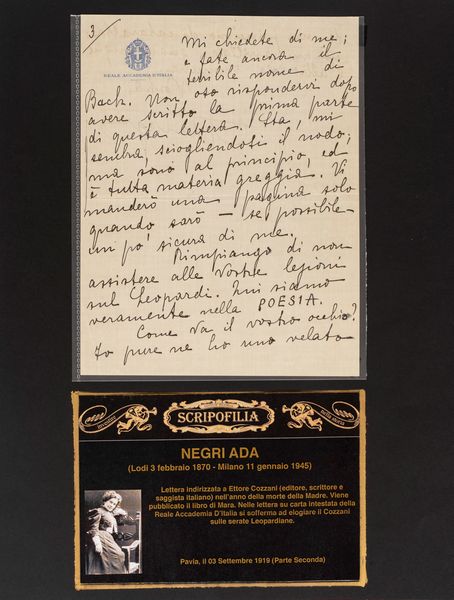 3/
REALE ACCADEMIA D'ITALIA
Mi chiedete di me;
e fate ancora il
terribile nome di
Bach. Non oso rispondervi dopo
avere scritto la prima parte
di questa lettera. Sta, mi
sembra, sciogliendosi il nodo;
ma sono al principio, ed
è tutta materia greggia. Vi
manderò una pagina solo
quando sarò – se possibile –
un po' sicura di me.
Rimpiango di non
assistere alle vostre lezioni
sul Leopardi. Qui siamo
veramente nella POESIA.
Come va il vostro occhio?
Io pure ne ho uno velato
SCRIPOFILIA
NEGRI ADA
(Lodi 3 febbraio 1870 - Milano 11 gennaio 1945)
Lettera indirizzata a Ettore Cozzani (editore, scrittore e
saggista italiano) nell'anno della morte della Madre. Viene
pubblicato il libro di Mara. Nelle lettera su carta intestata della
Reale Accademia D'Italia si sofferma ad elogiare il Cozzani
sulle serate Leopardiane.
Pavia, il 03 Settembre 1919 (Parte Seconda)